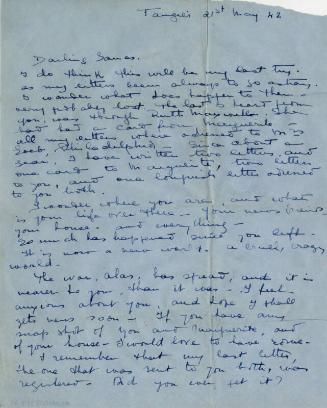 Tangier 21st May 42
Darling
I do think this will be my last try.
as my letters seem always to go astray.
I wonder what does happen to them -
very probably lost. The last I heard from
you, was through Ruth
had had a card from Marguerite -
all my letters where adressed to Mrs
Philadelphia - Since about a
year. I have written two letters and
one card to Marguerite, two letters
to you, and one conjoint letter adressed
to you both.
I wonder where you are, and what
is your life over there - Your news
your house - and everything -
So much has happened since you left -
It is now a new world - a crazy
world.
The war, alas, has spread, and it is
nearer to you than it was - I feel
anxious about you, and hope I shall
get news soon - If you have any
snap shot of you and Marguerite, and
of your house - I would love to have some.
I remember that my last letter,
the one that was sent to you both, was
registered - Did you ever get it?